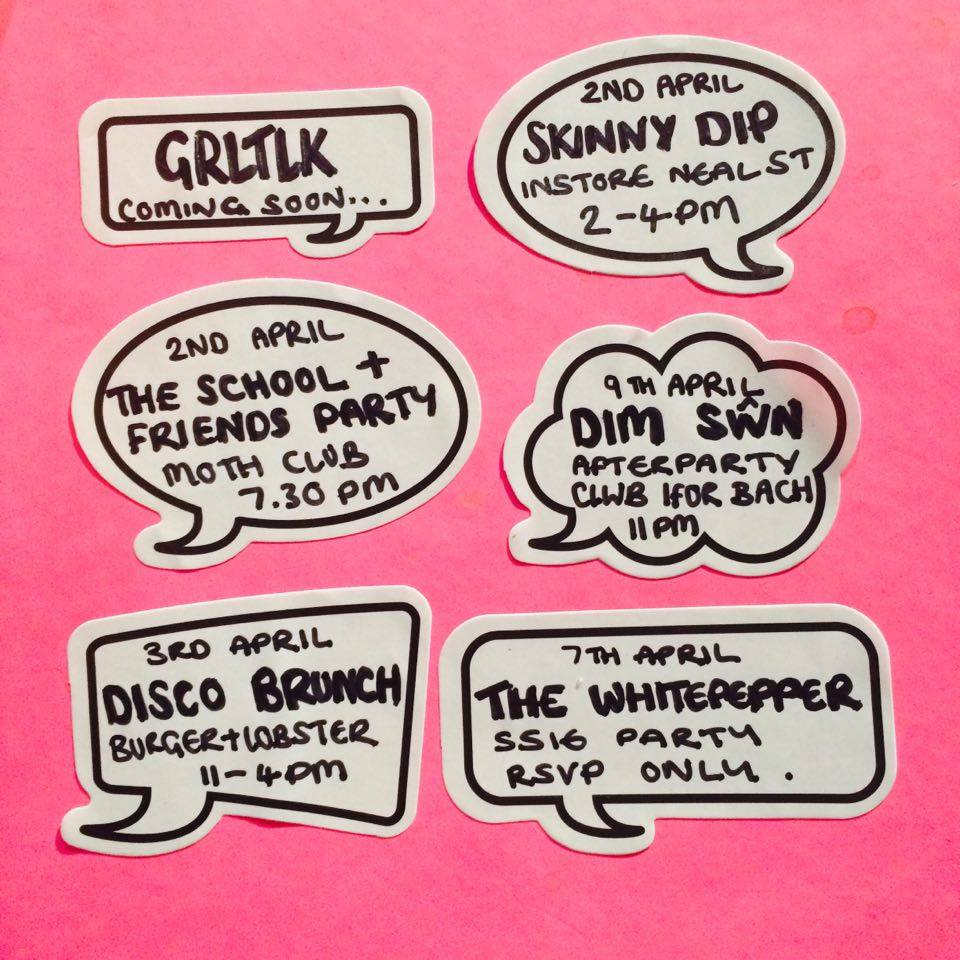 GRLTLK
COMING SOON...
2ND APRIL
SKINNY DIP
INSTORE NEAL ST
2-4PM
2ND APRIL
THE SCHOOL +
FRIENDS PARTY
MOTH CLUB
7.30 PM
9TH APRIL
DIM SŴN
AFTERPARTY
CLWB IFOR BACH
11PM
3RD APRIL
DISCO BRUNCH
BURGER+LOBSTER
11-4PM
7TH APRIL
THE WHITEPEPPER
SS16 PARTY
RSVP ONLY.